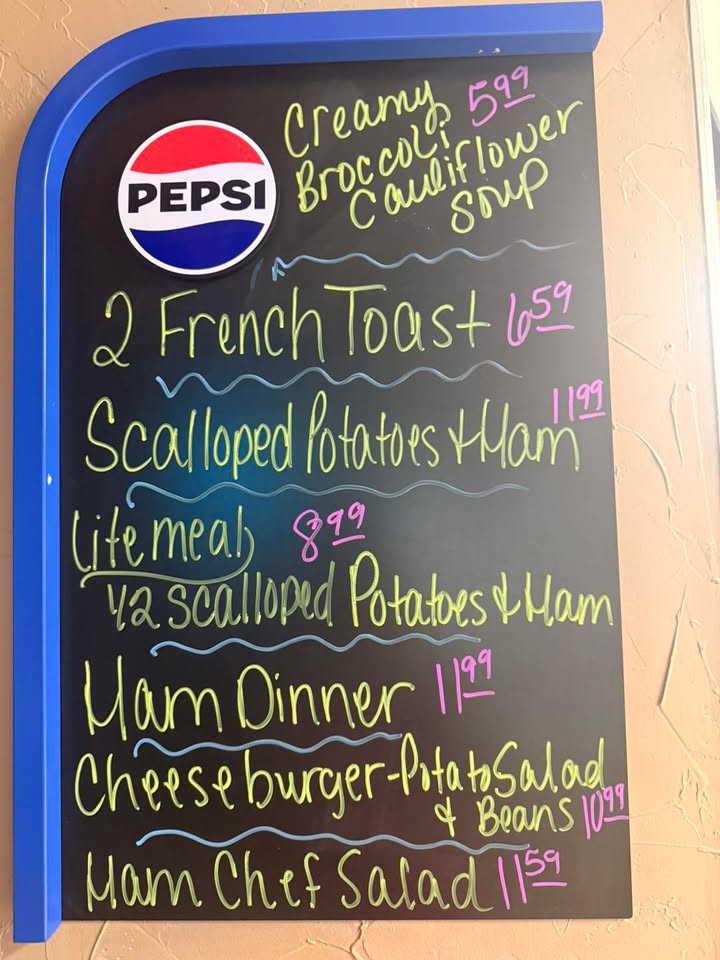 PEPSI
Creamy 5.99
Broccoli
Cauliflower
Soup
2 French Toast 6.59
Scalloped Potatoes & Ham 11.99
Lite meal 8.99
1/2 scalloped Potatoes & Ham
Ham Dinner 11.99
Cheeseburger-Potato Salad
& Beans 10.99
Ham Chef Salad 11.59